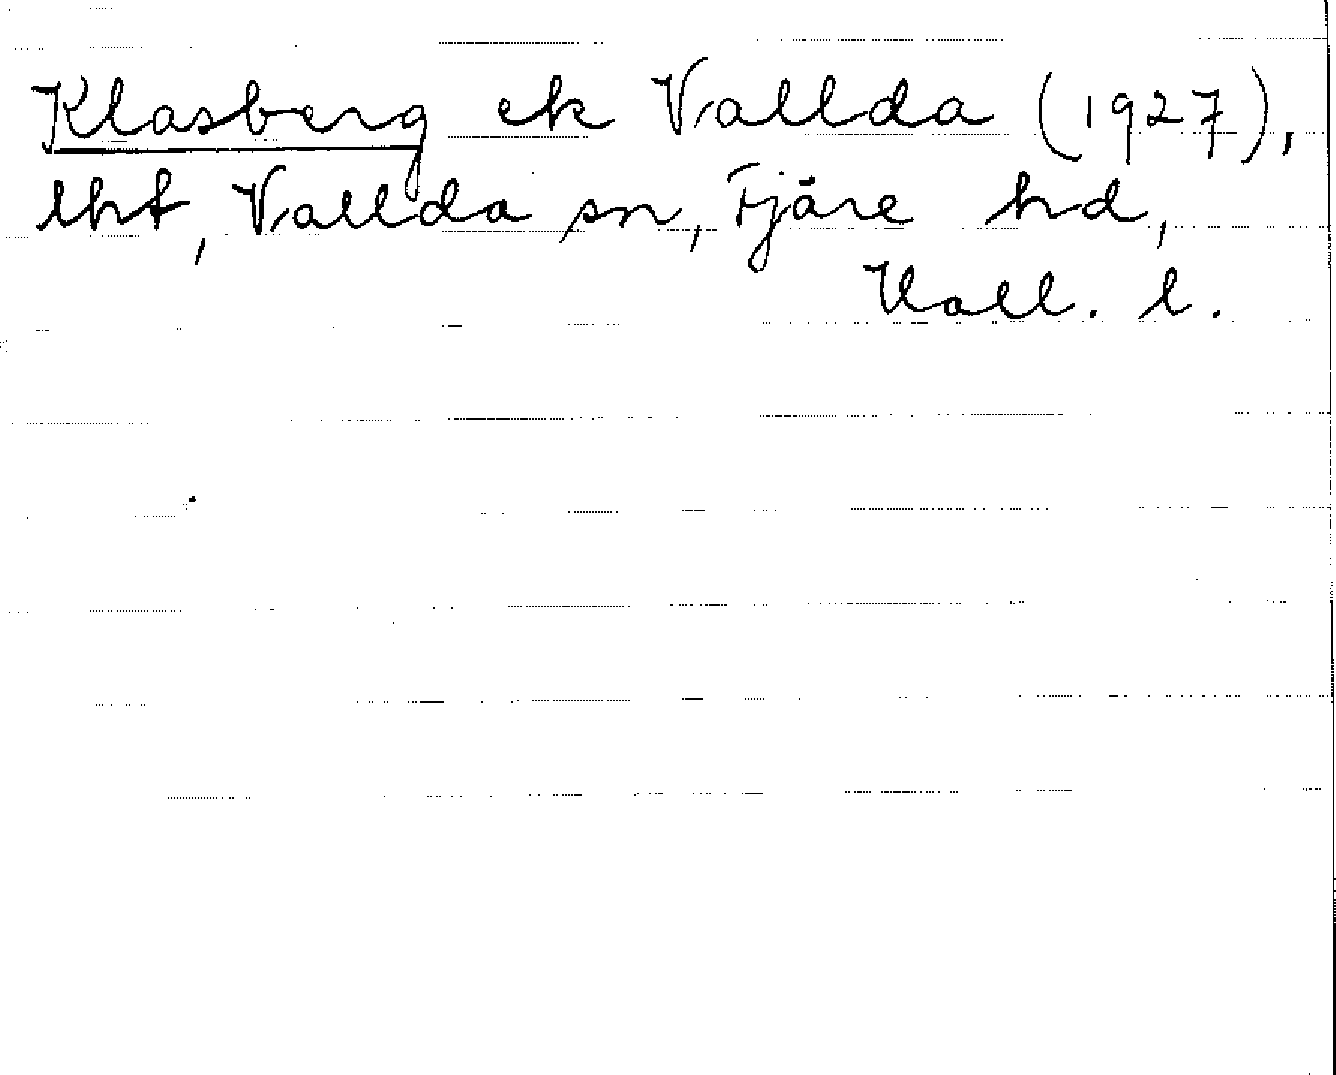 Klasberg ek Vallda (1927),
lht, Vallda sn, Fjäre hd,
Hall. l.